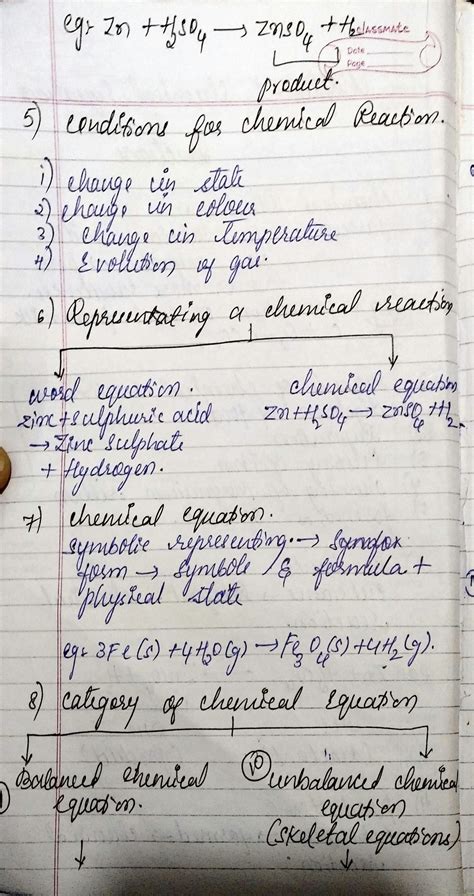 eg:- Zn + H₂SO₄ → ZnSO₄ + H₂
CLASSMATE
Date
Page
product.
5) Conditions for chemical Reaction.
1) change in state
2) change in colour
3) change in Temperature
4) Evolution of gas.
6) Representating a chemical reaction
word equation.
zinc + sulphuric acid
→ Zinc sulphate
+ Hydrogen.
chemical equation
Zn + H₂SO₄ → ZnSO₄ + H₂.
7) chemical equation.
symbolic representing. →
form → symbole & formula +
physical state
eg:- 3Fe(s) + 4H₂O(g) → Fe₃O₄(s) + 4H₂(g).
8) Category of chemical Equation
Balanced chemical
equation.
10 unbalanced chemical
equation
(skeletal equations)